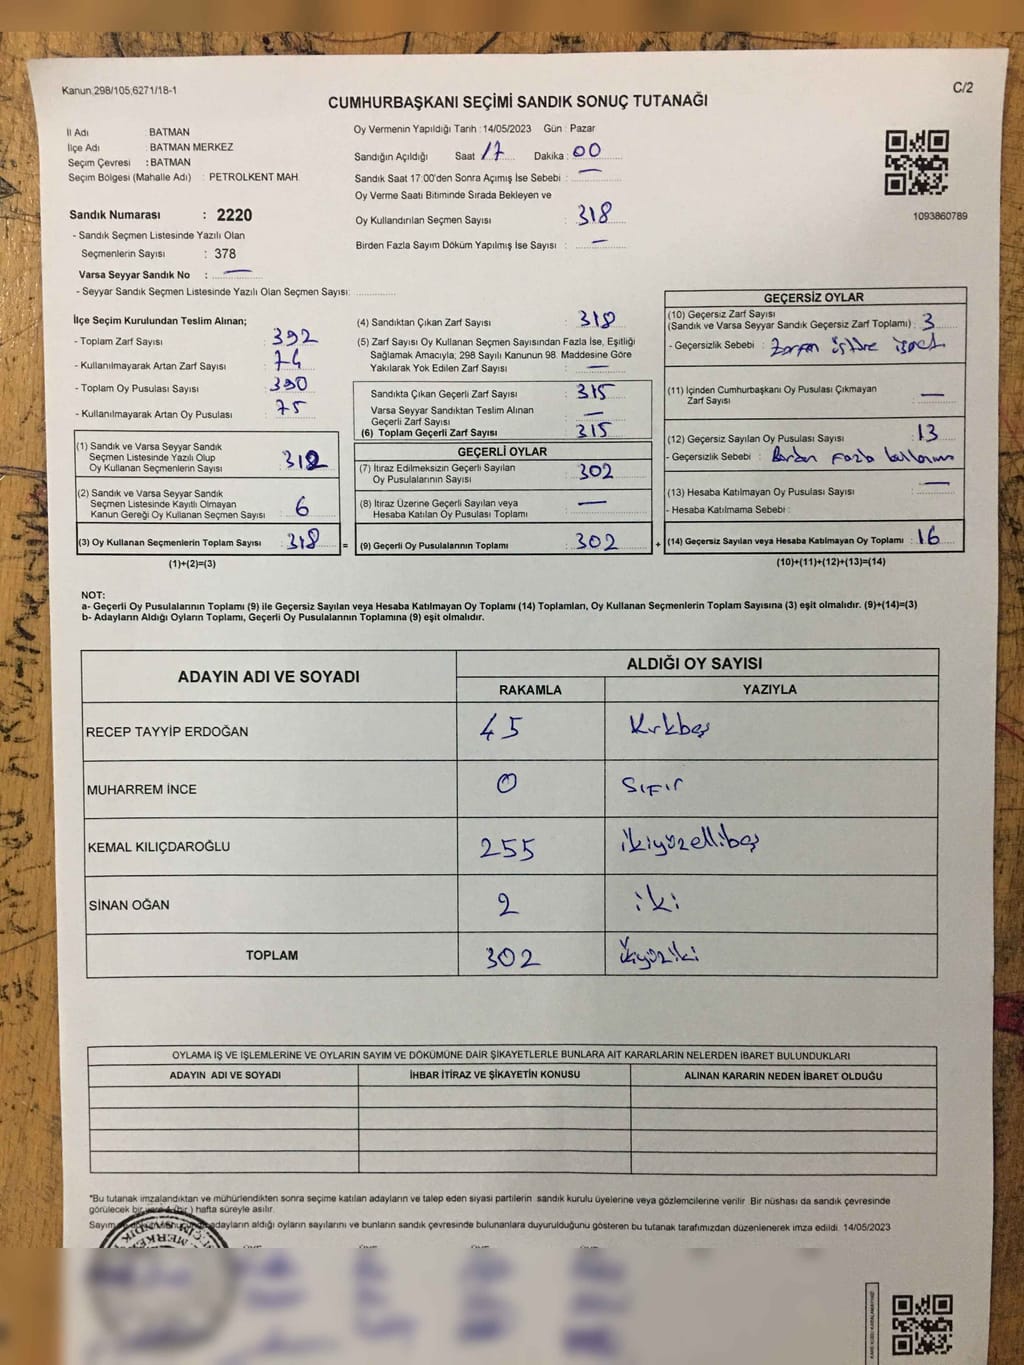 Kanun,298/105,6271/18-1
C/2
CUMHURBAŞKANI SEÇİMİ SANDIK SONUÇ TUTANAĞI
İl Adı : BATMAN
İlçe Adı : BATMAN MERKEZ
Seçim Çevresi : BATMAN
Seçim Bölgesi (Mahalle Adı) : PETROLKENT MAH.
Sandık Numarası : 2220
- Sandık Seçmen Listesinde Yazılı Olan
Seçmenlerin Sayısı : 378
Varsa Seyyar Sandık No : —
- Seyyar Sandık Seçmen Listesinde Yazılı Olan Seçmen Sayısı:
Oy Vermenin Yapıldığı Tarih : 14/05/2023 Gün : Pazar
Sandığın Açıldığı Saat 17 Dakika : 00
Sandık Saat 17:00'den Sonra Açımış İse Sebebi : —
Oy Verme Saati Bitiminde Sırada Bekleyen ve
Oy Kullandırılan Seçmen Sayısı : 318
Birden Fazla Sayım Döküm Yapılmış İse Sayısı : —
1093860789
İlçe Seçim Kurulundan Teslim Alınan;
- Toplam Zarf Sayısı : 392
- Kullanılmayarak Artan Zarf Sayısı : 74
- Toplam Oy Pusulası Sayısı : 390
- Kullanılmayarak Artan Oy Pusulası : 75
(1) Sandık ve Varsa Seyyar Sandık
Seçmen Listesinde Yazılı Olup
Oy Kullanan Seçmenlerin Sayısı : 312
(2) Sandık ve Varsa Seyyar Sandık
Seçmen Listesinde Kayıtlı Olmayan
Kanun Gereği Oy Kullanan Seçmen Sayısı : 6
(3) Oy Kullanan Seçmenlerin Toplam Sayısı : 318 =
(1)+(2)=(3)
(4) Sandıktan Çıkan Zarf Sayısı : 318
(5) Zarf Sayısı Oy Kullanan Seçmen Sayısından Fazla İse, Eşitliği
Sağlamak Amacıyla; 298 Sayılı Kanunun 98. Maddesine Göre
Yakılarak Yok Edilen Zarf Sayısı : —
Sandıkta Çıkan Geçerli Zarf Sayısı : 315
Varsa Seyyar Sandıktan Teslim Alınan
Geçerli Zarf Sayısı : —
(6) Toplam Geçerli Zarf Sayısı : 315
GEÇERLİ OYLAR
(7) İtiraz Edilmeksizin Geçerli Sayılan
Oy Pusulalarının Sayısı : 302
(8) İtiraz Üzerine Geçerli Sayılan veya
Hesaba Katılan Oy Pusulası Toplamı : —
(9) Geçerli Oy Pusulalarının Toplamı : 302 +
GEÇERSİZ OYLAR
(10) Geçersiz Zarf Sayısı
(Sandık ve Varsa Seyyar Sandık Geçersiz Zarf Toplamı) : 3
- Geçersizlik Sebebi : Zarfın üstüne işaret
(11) İçinden Cumhurbaşkanı Oy Pusulası Çıkmayan
Zarf Sayısı : —
(12) Geçersiz Sayılan Oy Pusulası Sayısı : 13
- Geçersizlik Sebebi : Birden fazla kullanım
(13) Hesaba Katılmayan Oy Pusulası Sayısı : —
- Hesaba Katılmama Sebebi :
(14) Geçersiz Sayılan veya Hesaba Katılmayan Oy Toplamı : 16
(10)+(11)+(12)+(13)=(14)
NOT:
a- Geçerli Oy Pusulalarının Toplamı (9) ile Geçersiz Sayılan veya Hesaba Katılmayan Oy Toplamı (14) Toplamları, Oy Kullanan Seçmenlerin Toplam Sayısına (3) eşit olmalıdır. (9)+(14)=(3)
b- Adayların Aldığı Oyların Toplamı, Geçerli Oy Pusulalarının Toplamına (9) eşit olmalıdır.
ADAYIN ADI VE SOYADI ALDIĞI OY SAYISI
RAKAMLA YAZIYLA
RECEP TAYYİP ERDOĞAN 45 Kırkbeş
MUHARREM İNCE 0 Sıfır
KEMAL KILIÇDAROĞLU 255 ikiyüzellibeş
SİNAN OĞAN 2 iki
TOPLAM 302 Üçyüziki
OYLAMA İŞ VE İŞLEMLERİNE VE OYLARIN SAYIM VE DÖKÜMÜNE DAİR ŞİKAYETLERLE BUNLARA AİT KARARLARIN NELERDEN İBARET BULUNDUKLARI
ADAYIN ADI VE SOYADI İHBAR İTİRAZ VE ŞİKAYETİN KONUSU ALINAN KARARIN NEDEN İBARET OLDUĞU
*Bu tutanak imzalandıktan ve mühürlendikten sonra seçime katılan adayların ve talep eden siyasi partilerin sandık kurulu üyelerine veya gözlemcilerine verilir. Bir nüshası da sandık çevresinde
görülecek bir yere 1 (bir) hafta süreyle asılır.
Sayım adayların aldığı oyların sayılarını ve bunların sandık çevresinde bulunanlara duyurulduğunu gösteren bu tutanak tarafımızdan düzenlenerek imza edildi. 14/05/2023